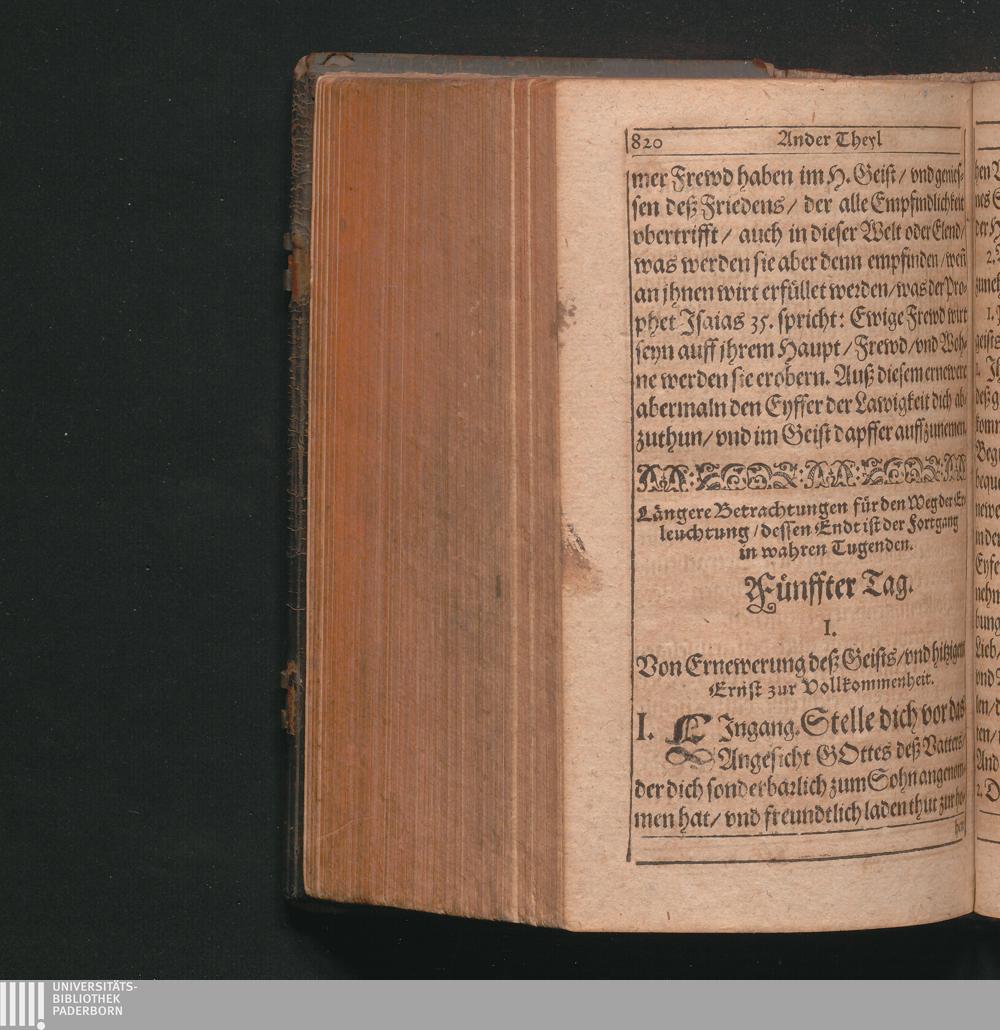 820 Ander Theyl
mer Frewd haben im H. Geist / vnd genies-
sen deß Friedens / der alle Empfindlichkeit
vbertrifft / auch in dieser Welt oder Elend /
was werden sie aber denn empfinden / weñ
an jhnen wirt erfüllet werden / was der Pro-
phet Isaias 35. spricht: Ewige Frewd wirt
seyn auff jhrem Haupt / Frewd / vnd Woñ-
ne werden sie erobern. Auß diesem ernewere
abermaln den Eyffer der Lawigkeit dich ab-
zuthun / vnd im Geist dapffer auffzunemen.
Längere Betrachtungen für den Weg der Er-
leuchtung / dessen Endt ist der Fortgang
in wahren Tugenden.
Fünffter Tag.
I.
Von Ernewerung deß Geists / vnd hitzigem
Ernst zur Vollkommenheit.
I. EIngang. Stelle dich vor das
Angesicht GOttes deß Vatters /
der dich sonderbarlich zum Sohn angenom-
men hat / vnd freundtlich laden thut zur ho-
hen
UNIVERSITÄTS-
BIBLIOTHEK
PADERBORN